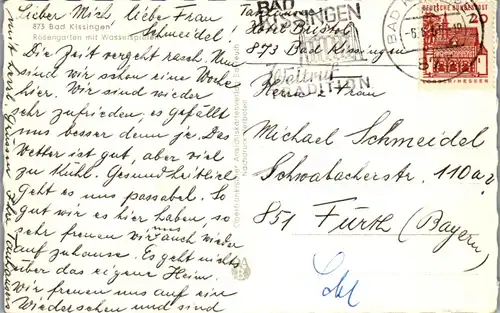 Lieber Mich, liebe Frau
Schmeidel!
873 Bad Kissingen
Rosengarten mit Wasserspielen
Die Zeit vergeht rasch. Nun
sind wir schon eine Woche
hier. Wir sind wieder
sehr zufrieden, es gefällt
uns besser denn je. Das
Wetter ist gut, aber viel
zu kühl. Gesundheitlich
geht es uns passabel. So
gut wir es hier haben, so
sehr freuen wir uns auch wieder
auf zuhause. Es geht nichts
über das eigene Heim.
Wir freuen uns auf ein
Wiedersehen und sind
mit herzl. Grüssen Ihre
Hotel Bristol
873 Bad Kissingen
BAD
KISSINGEN
Weltruf
TRADITION
BAD KISSINGEN
DEUTSCHE BUNDESPOST
20
LORSCH/HESSEN
Herrn u. Frau
Michael Schmeidel
Schwabacherstr. 110a
851 Fürth (Bayern)
Nachdruck verboten